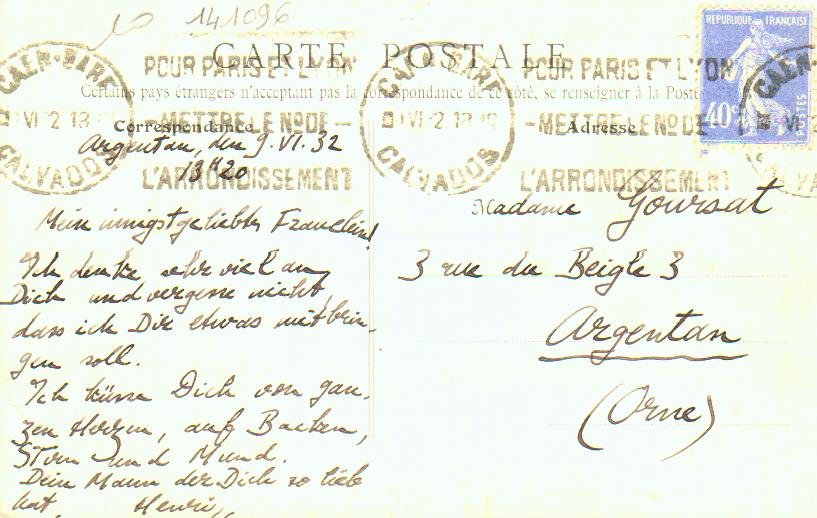 141096
CARTE POSTALE
REPUBLIQUE FRANÇAISE
40c
POSTES
CAEN-GARE
CALVADOS
POUR PARIS ET LYON
METTRE LE No DE
L'ARRONDISSEMENT
CAEN-GARE
CALVADOS
POUR PARIS ET LYON
METTRE LE No DE
L'ARRONDISSEMENT
CAEN
Certains pays étrangers n'acceptant pas la correspondance de ce côté, se renseigner à la Poste
Correspondance
Adresse
Argentan, den 9. VI. 32
13H20
Mein innigstgeliebtes Frauchen!
Ich denke sehr viel an
Dich und vergesse nicht,
dass ich Dir etwas mitbrin-
gen soll.
Ich küsse Dich von gan-
zen Herzen, auf Backen,
Stirn und Mund.
Dein Mann der Dich so liebe
hat, Henri,,
Madame Goursat
3 rue du Beigle 3
Argentan
(Orne)